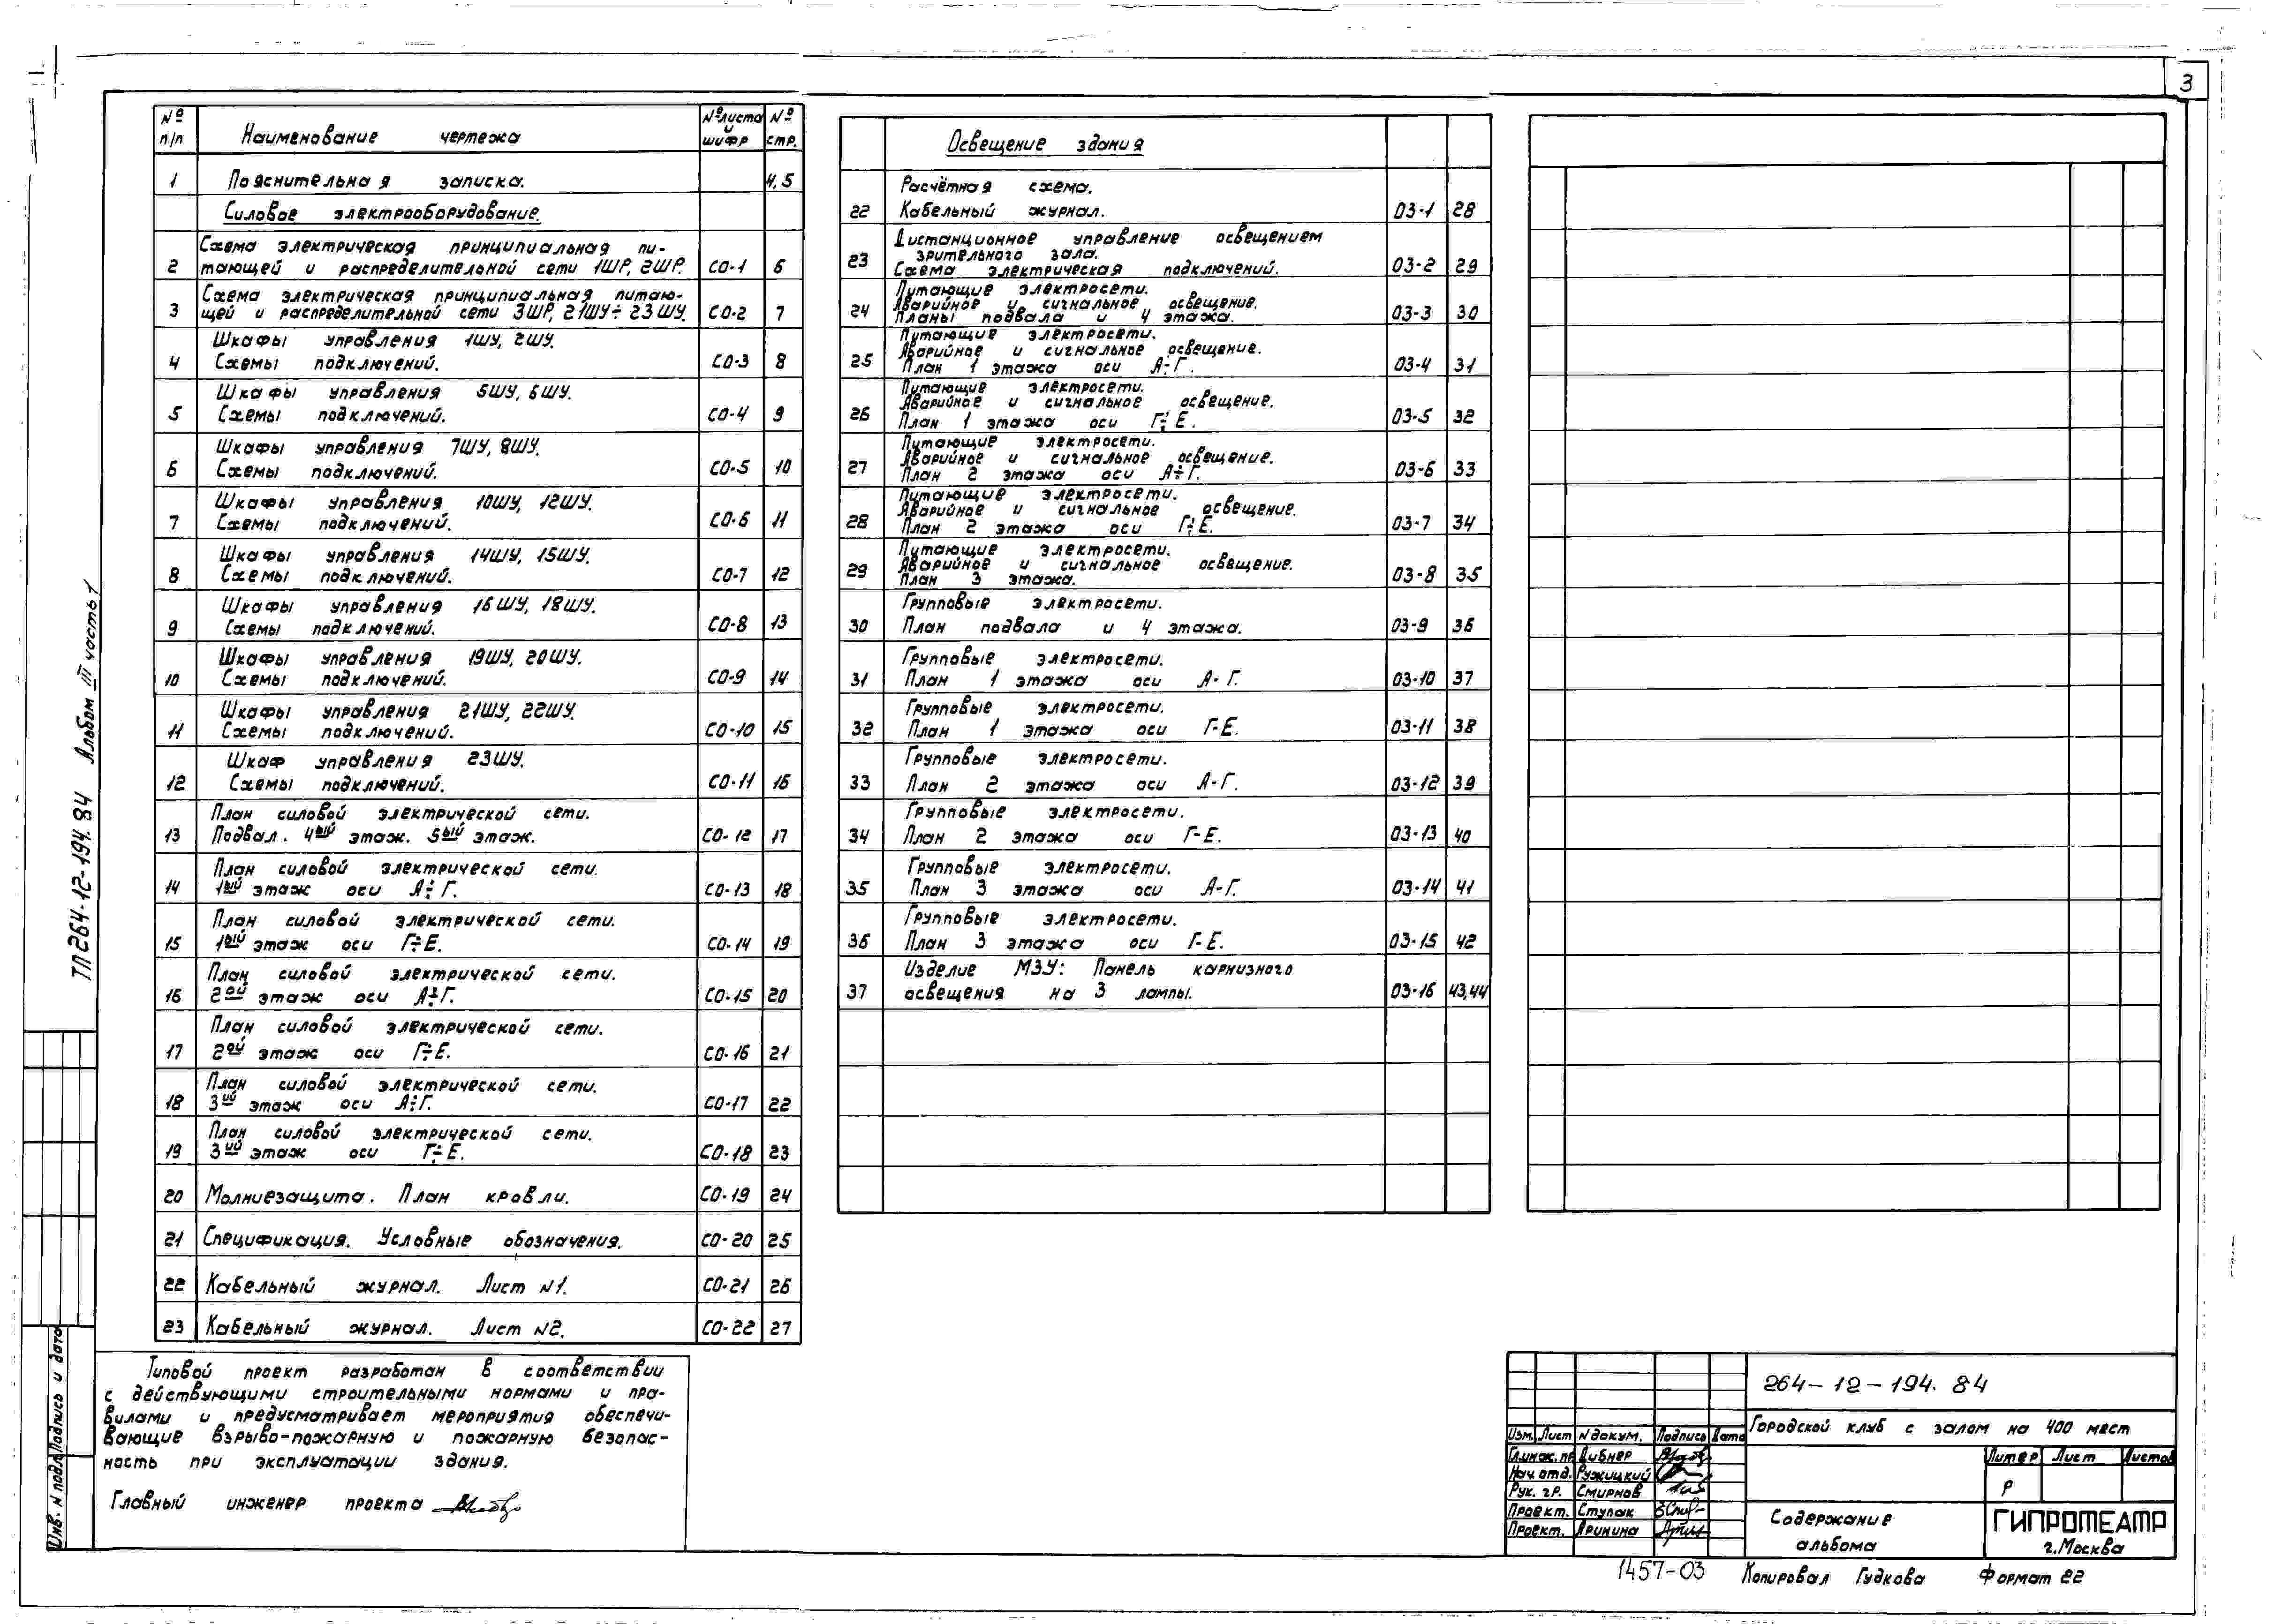 3
№ п/п Наименование чертежа № листа и шифр № стр.
1 Пояснительная записка. 4,5
Силовое электрооборудование.
Схема электрическая принципиальная пи-
2 тающей и распределительной сети 1ШР, 2ШР. СО-1 6
Схема электрическая принципиальная питаю-
3 щей и распределительной сети 3ШР, 21ШУ÷23ШУ. СО-2 7
Шкафы управления 1ШУ, 2ШУ.
4 Схемы подключений. СО-3 8
Шкафы управления 5ШУ, 6ШУ.
5 Схемы подключений. СО-4 9
Шкафы управления 7ШУ, 8ШУ.
6 Схемы подключений. СО-5 10
Шкафы управления 10ШУ, 12ШУ.
7 Схемы подключений. СО-6 11
Шкафы управления 14ШУ, 15ШУ.
8 Схемы подключений. СО-7 12
Шкафы управления 16ШУ, 18ШУ.
9 Схемы подключений. СО-8 13
Шкафы управления 19ШУ, 20ШУ.
10 Схемы подключений. СО-9 14
Шкафы управления 21ШУ, 22ШУ.
11 Схемы подключений. СО-10 15
Шкаф управления 23ШУ.
12 Схемы подключений. СО-11 16
План силовой электрической сети.
13 Подвал. 4ый этаж. 5ый этаж. СО-12 17
План силовой электрической сети.
14 1ый этаж оси А÷Г. СО-13 18
План силовой электрической сети.
15 1ый этаж оси Г÷Е. СО-14 19
План силовой электрической сети.
16 2ой этаж оси А÷Г. СО-15 20
План силовой электрической сети.
17 2ой этаж оси Г÷Е. СО-16 21
План силовой электрической сети.
18 3ий этаж оси А÷Г. СО-17 22
План силовой электрической сети.
19 3ий этаж оси Г÷Е. СО-18 23
20 Молниезащита. План кровли. СО-19 24
21 Спецификация. Условные обозначения. СО-20 25
22 Кабельный журнал. Лист №1. СО-21 26
23 Кабельный журнал. Лист №2. СО-22 27
Освещение здания
Расчётная схема.
22 Кабельный журнал. ОЗ-1 28
Дистанционное управление освещением
23 зрительного зала.
Схема электрическая подключений. ОЗ-2 29
Питающие электросети.
24 Аварийное и сигнальное освещение.
Планы подвала и 4 этажа. ОЗ-3 30
Питающие электросети.
25 Аварийное и сигнальное освещение.
План 1 этажа оси А÷Г. ОЗ-4 31
Питающие электросети.
26 Аварийное и сигнальное освещение.
План 1 этажа оси Г÷Е. ОЗ-5 32
Питающие электросети.
27 Аварийное и сигнальное освещение.
План 2 этажа оси А÷Г. ОЗ-6 33
Питающие электросети.
28 Аварийное и сигнальное освещение.
План 2 этажа оси Г÷Е. ОЗ-7 34
Питающие электросети.
29 Аварийное и сигнальное освещение.
План 3 этажа. ОЗ-8 35
Групповые электросети.
30 План подвала и 4 этажа. ОЗ-9 36
Групповые электросети.
31 План 1 этажа оси А-Г. ОЗ-10 37
Групповые электросети.
32 План 1 этажа оси Г-Е. ОЗ-11 38
Групповые электросети.
33 План 2 этажа оси А-Г. ОЗ-12 39
Групповые электросети.
34 План 2 этажа оси Г-Е. ОЗ-13 40
Групповые электросети.
35 План 3 этажа оси А-Г. ОЗ-14 41
Групповые электросети.
36 План 3 этажа оси Г-Е. ОЗ-15 42
Изделие МЗУ: Панель карнизного
37 освещения на 3 лампы. ОЗ-16 43,44
ТП 264-12-194.84 Альбом III часть 1
Инв. N подл. Подпись и дата
Типовой проект разработан в соответствии
с действующими строительными нормами и пра-
вилами и предусматривает мероприятия обеспечи-
вающие взрыво-пожарную и пожарную безопас-
ность при эксплуатации здания.
Главный инженер проекта
264-12-194.84
Городской клуб с залом на 400 мест
Изм. Лист N докум. Подпись Дата
Гл.инж.пр Дибнер
Нач.отд. Ружицкий
Рук. гр. Смирнов
Проект. Ступак
Проект. Аринина
Литер Лист Листов
Р
Содержание
альбома
ГИПРОТЕАТР
г.Москва
1457-03 Копировал Гудкова Формат 22